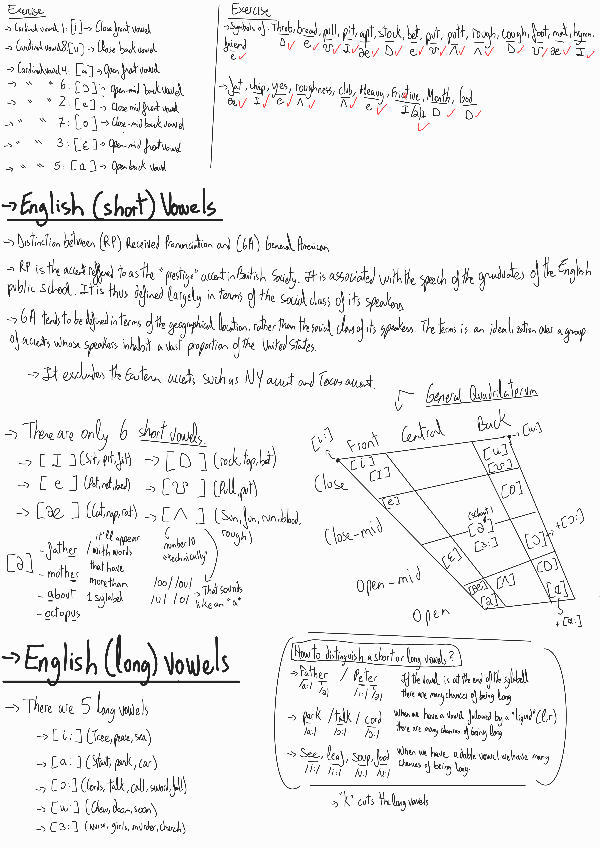 Exercise
→ Cardinal vowel 1: [i] → Close front vowel
→ Cardinal vowel 8: [u] → Close back vowel
→ Cardinal vowel 4: [a] → Open front vowel
→ " " " 6: [ɔ] → Open-mid back vowel
→ " " " 2: [e] → Close-mid front vowel
→ " " 7: [o] → Close-mid back vowel
→ " " 3: [ɛ] → Open-mid front vowel
→ " " 5: [ɑ] → Open back vowel
Exercise
→ Symbols of: bread, pull, pit, apt, stock, bet, put, putt, rough, cough, foot, mad, hymn,
friend
→ chip, yes, roughness, club, Heavy, Month, God
→ English (short) Vowels
→ Distinction between (RP) Received Pronunciation and (GA) General American
→ RP is the accent reffered to as the "prestige" accent in British Society. It is associated with the speech of the graduates of the English
public school. It is thus defined largely in terms of the social class of its speakers
→ GA tends to be defined in terms of the geographical location, rather than the social class of its speakers. The terms is an idealization over a group
of accents whose speakers inhabit a vast proportion of the United States.
→ It excludes the Eastern accents such as NY accent and Texas accent.
→ There are only 6 short vowels
→ [I] (Sit, pit, fit) → [ɒ] (rock, top, bot)
→ [e] (Pet, net, bed) → [ʊ] (Pull, put)
→ [æ] (Cat, rap, rat) → [ʌ] (Sun, fun, run, blood,
rough)
[ə]
- father
- mother
- about
- octopus
it'll appear
with words
that have
more than
1 sylabel
number 10
"technically"
/oo/ /ou/
/u/ /o/
→ That sounds
like an "a"
General Quadrilaterum
Front Central Back
[i:] [u:]
[i] [u]
Close [I] [ʊ]
[e] [o]
Close-mid
(schwa)
[ə]
[ɜ:]
+[ɔ:]
[ɛ] [ɔ]
Open-mid
[æ] [ʌ] [ɒ]
Open [a] [ɑ]
+[ɑ:]
→ English (long) vowels
→ There are 5 long vowels
→ [i:] (Tree, peace, sea)
→ [a:] (Start, park, car)
→ [ɔ:] (Cords, talk, call, sword, fall)
→ [u:] (Chew, doom, soon)
→ [ɜ:] (Nurse, girls, murder, church)
How to distinguish a short or long vowels?
→ Father / Peter
/a:/ /ə/ /i:/ /ə/
If the vowel is at the end of the sylabell
there are many chances of being long
→ park / talk / cord
/a:/ /ɔ:/ /ɔ:/
When we have a vowel followed by a "liquid" (l, r)
there are many chances of being long
→ See, leaf, soup, food
/i:/ /i:/ /u:/ /u:/
When we have a doble vowel we have many
chances of being long.
→ "K" cuts the long vowels